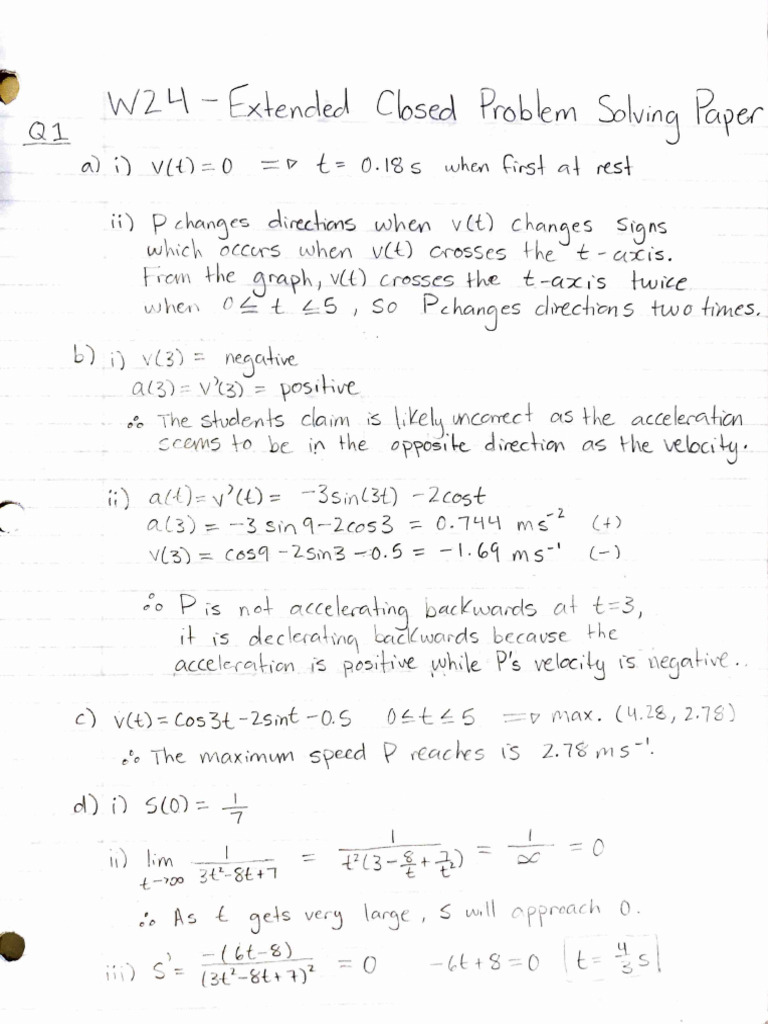 W24 - Extended Closed Problem Solving Paper
Q1
a) i) v(t) = 0 => t = 0.18 s when first at rest
ii) P changes directions when v(t) changes signs
which occurs when v(t) crosses the t-axis.
From the graph, v(t) crosses the t-axis twice
when 0 ≤ t ≤ 5, so P changes directions two times.
b) i) v(3) = negative
a(3) = v'(3) = positive
∴ The students claim is likely incorrect as the acceleration
seems to be in the opposite direction as the velocity.
ii) a(t) = v'(t) = -3sin(3t) - 2cost
a(3) = -3 sin 9 - 2cos3 = 0.744 ms⁻² (+)
v(3) = cos9 - 2sin3 - 0.5 = -1.69 ms⁻¹ (-)
∴ P is not accelerating backwards at t=3,
it is declerating backwards because the
acceleration is positive while P's velocity is negative..
c) v(t) = cos3t - 2sint - 0.5 0≤t≤5 => max. (4.28, 2.78)
∴ The maximum speed P reaches is 2.78 ms⁻¹.
d) i) S(0) = 1/7
ii) lim t→∞ 1/(3t²-8t+7) = 1/(t²(3 - 8/t + 7/t²)) = 1/∞ = 0
∴ As t gets very large, s will approach 0.
iii) S' = -(6t-8)/(3t²-8t+7)² = 0 -6t+8=0 t = 4/3 s